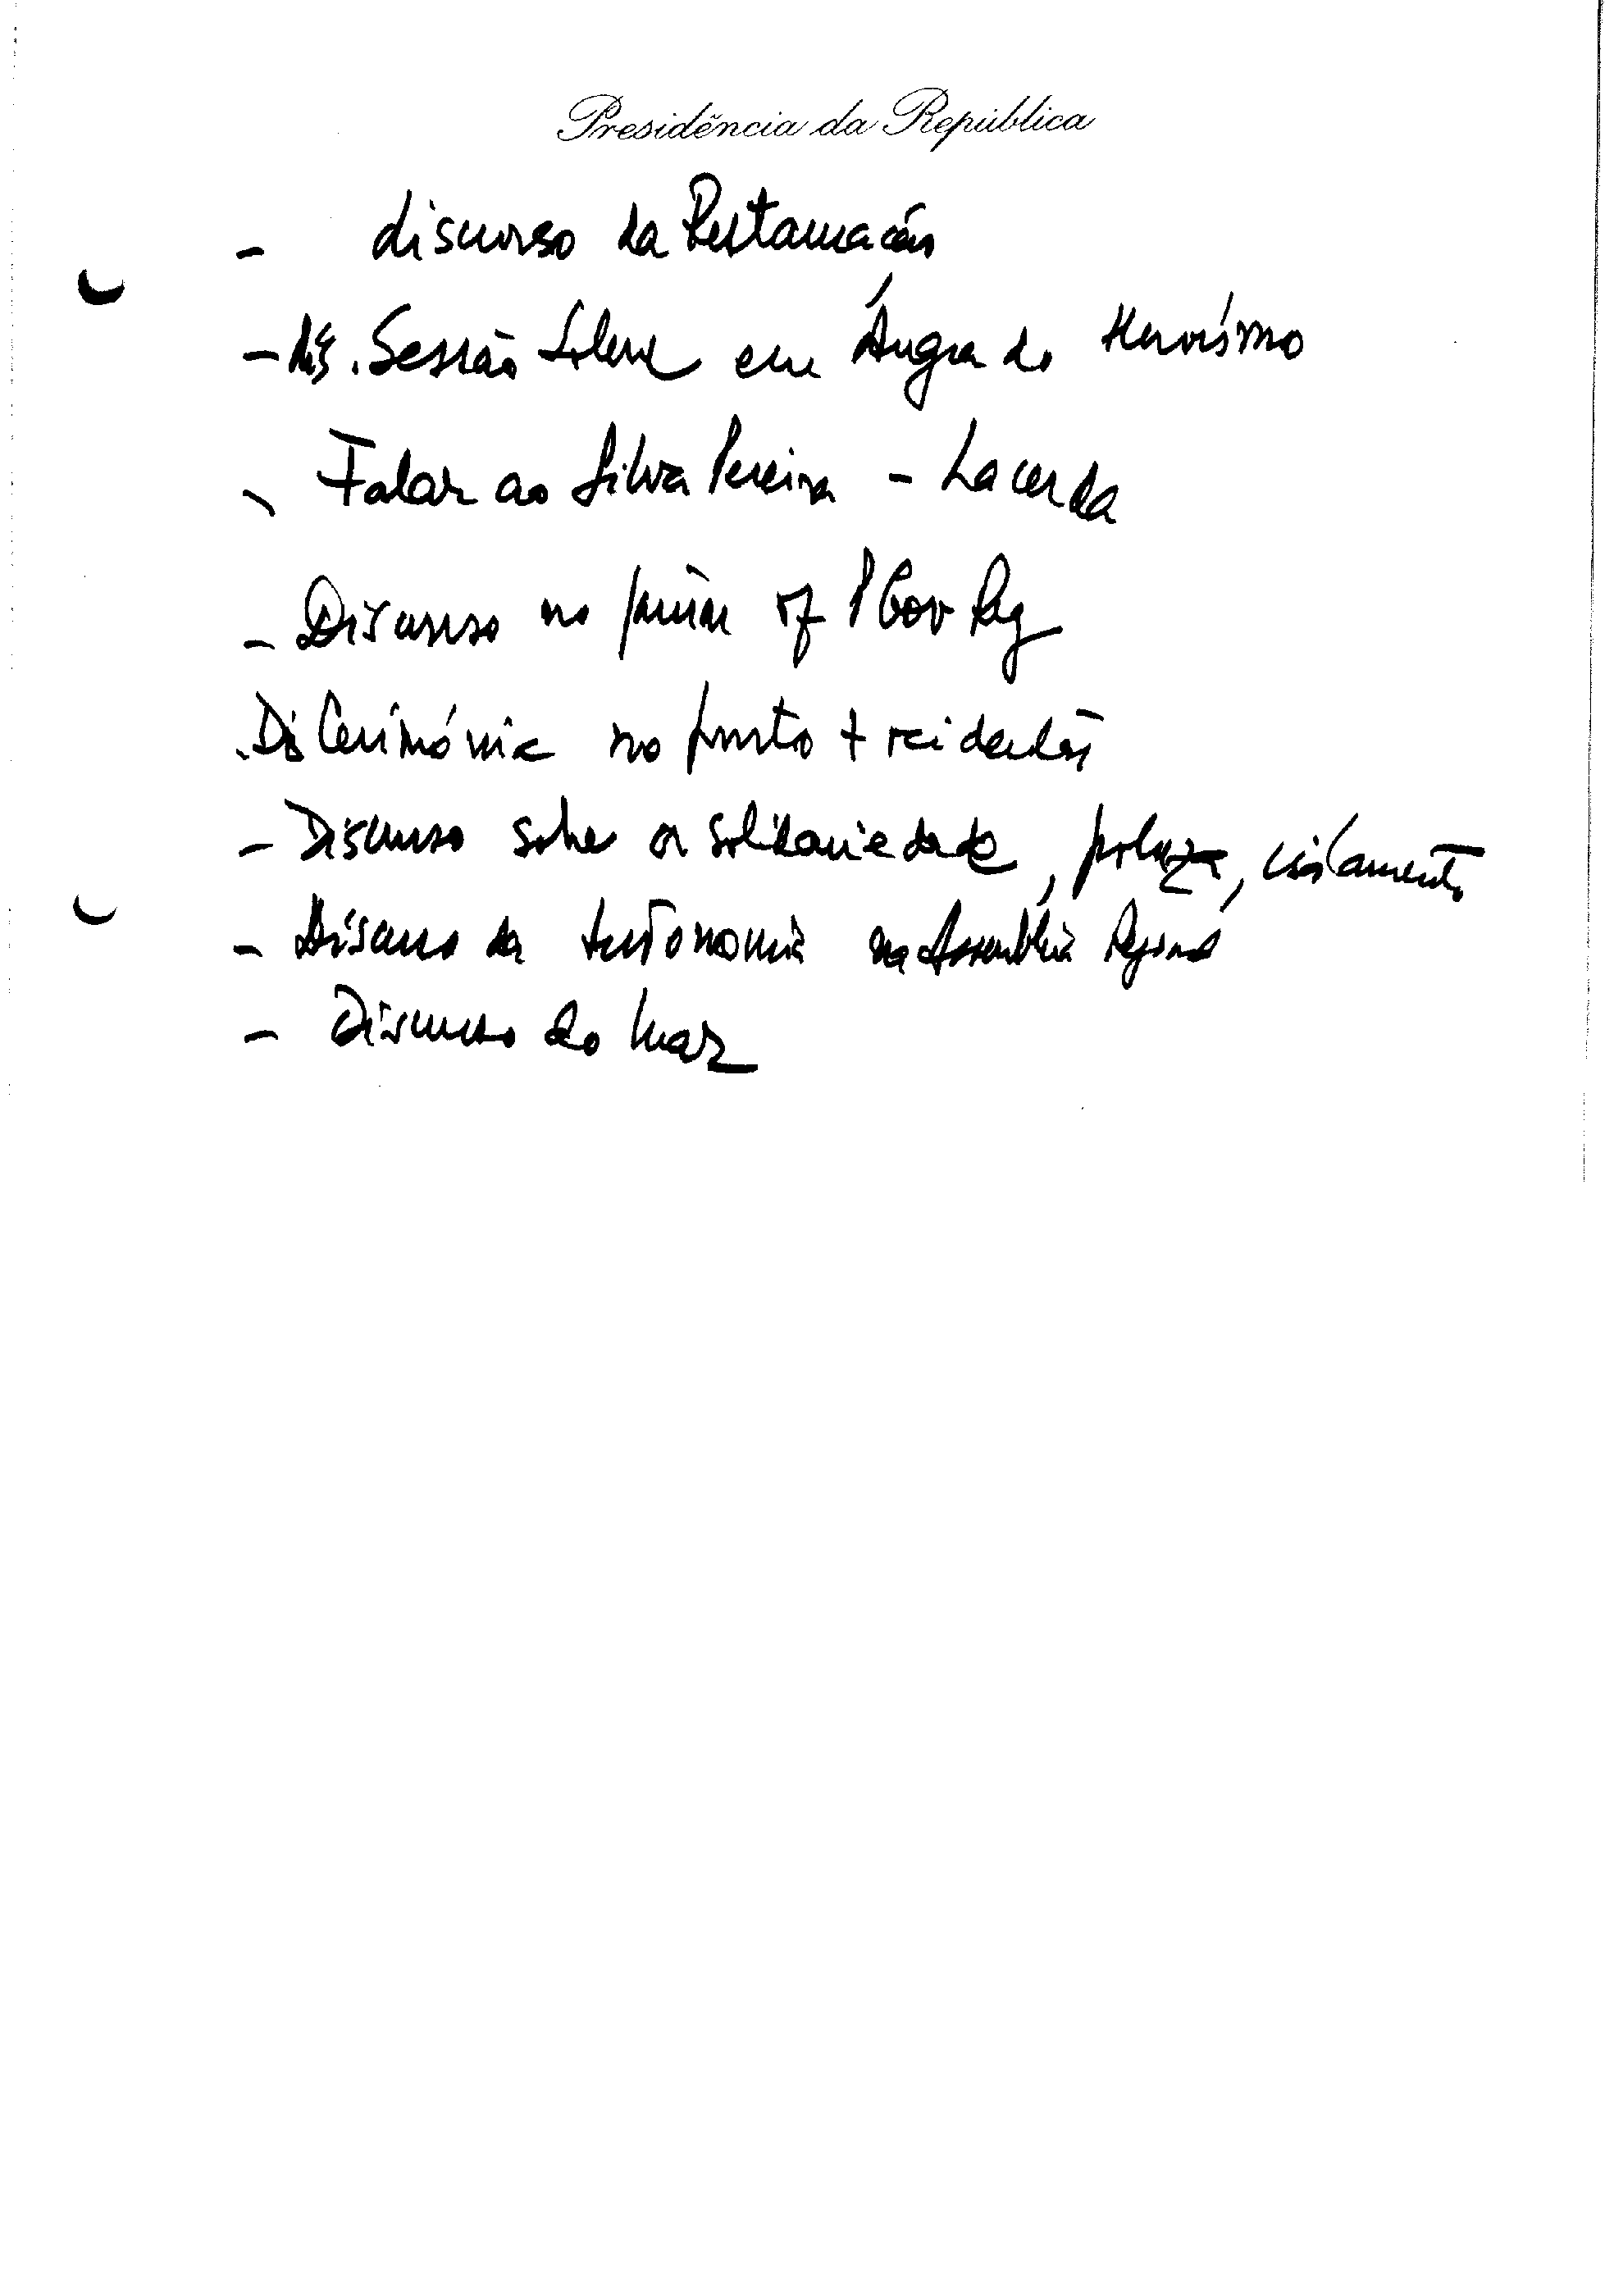 Presidência da República
- discurso da Restauração
- dis. Sessão Solene em Ángra do Heroísmo
- Falar ao Silva Pereira - Lacerda
- Discurso no jantar of P Gov Reg
. Dis Cerimónia no porto +
- Discurso sobre a solidariedade, pobreza, isolamento
- Discurso da Autonomia na Assembleia Regional
- Discurso do mar